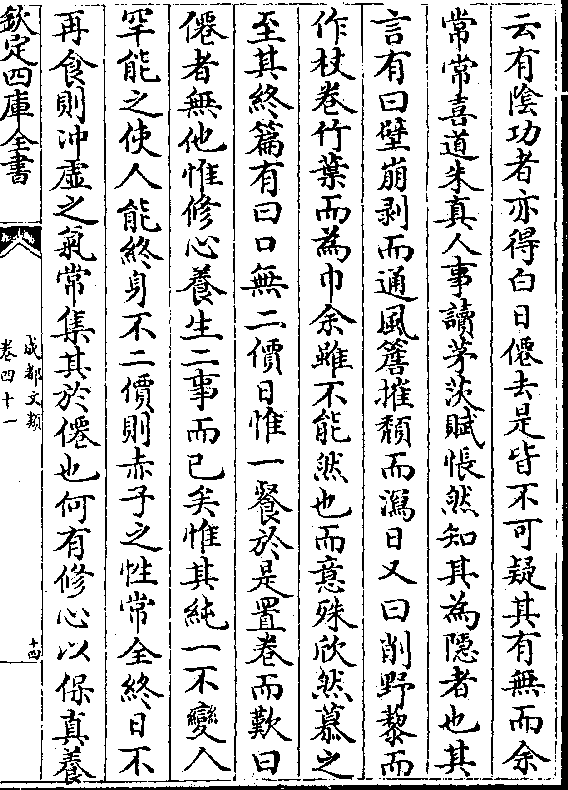 云有陰功者亦得白日僊去是皆不可疑其有無而余
常常喜道朱真人事讀茅茨賦悵然知其為隱者也其
言有曰壁崩剥而通風簷摧頽而漏日又曰削野藜而
作杖卷竹葉而為巾余雖不能然也而意殊欣然慕之
至其終篇有曰口無二價日惟一餐於是置卷而歎曰
僊者無他惟修心養生二事而已矣惟其純一不變人
罕能之使人能終身不二價則赤子之性常全終日不
再食則冲虛之氣常集其於僊也何有修心以保真養
欽定四庫全書
成都文類
卷四十一
十四